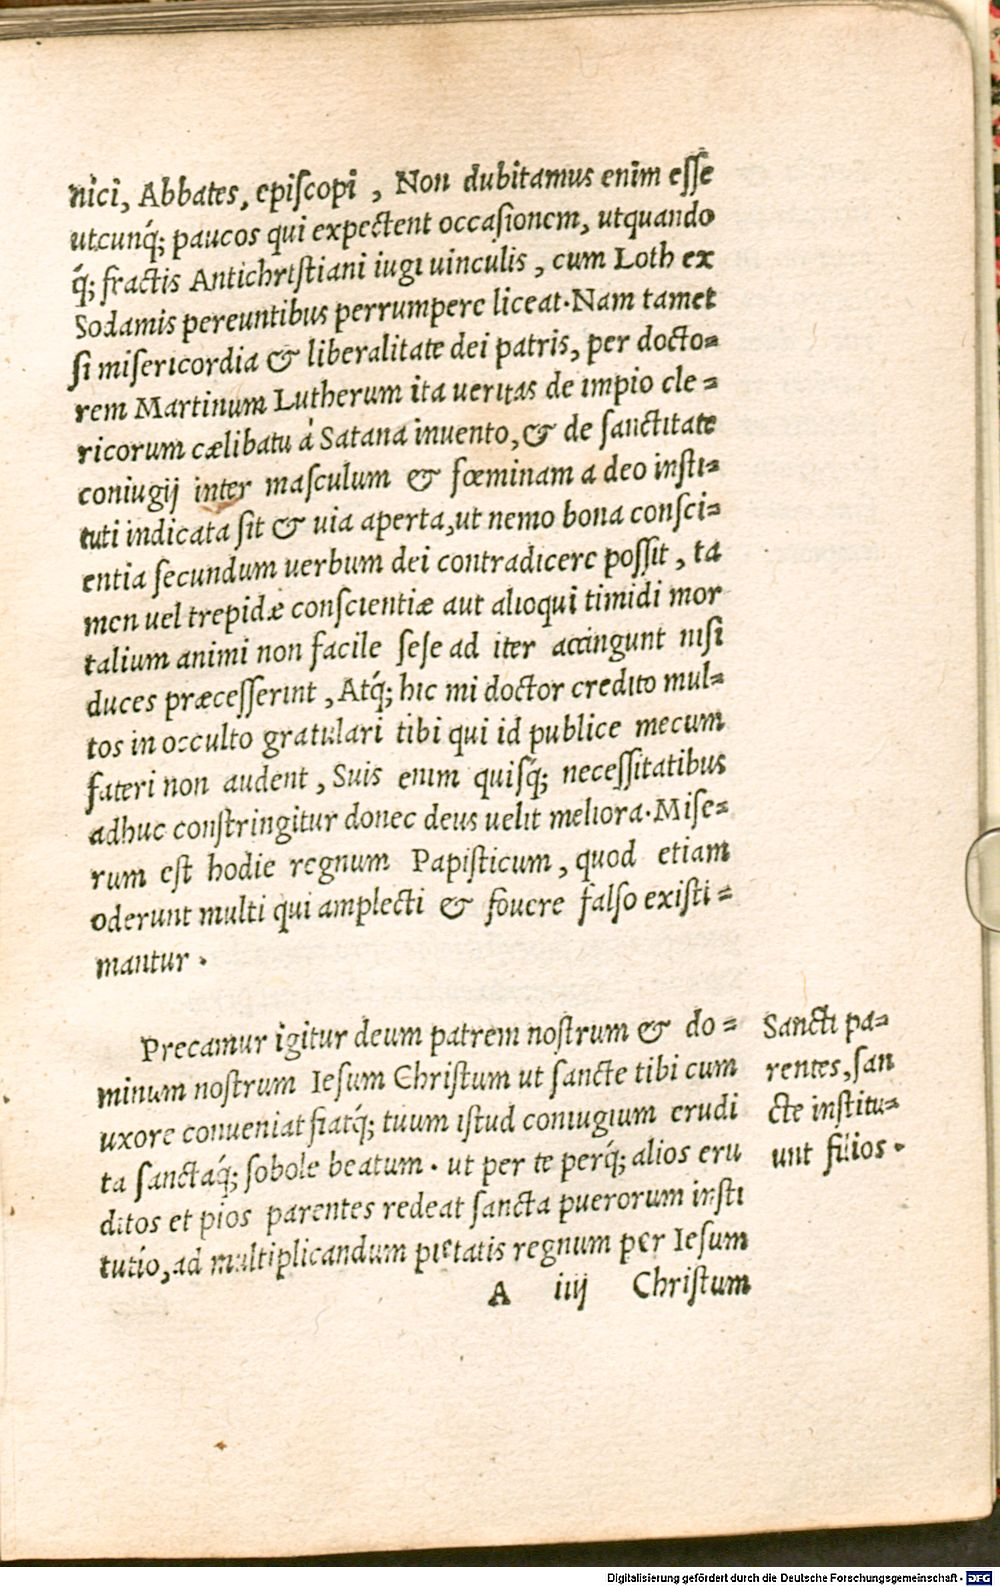 nici, Abbates, epiſcopi , Non dubitamus enim eſſe
utcunq́; paucos qui expectent occaſionem, utquando
q́; fractis Antichriſtiani iugi uinculis , cum Loth ex
Sodamis pereuntibus perrumpere liceat·Nam tamet
ſi miſericordia & liberalitate dei patris, per docto⸗
rem Martinum Lutherum ita ueritas de impio cle⸗
ricorum cælibatu à Satana inuento,& de ſanctitate
coniugij inter maſculum & fœminam a deo inſti⸗
tuti indicata ſit & uia aperta,ut nemo bona conſci⸗
entia ſecundum uerbum dei contradicere poſſit , ta
men uel trepidæ conſcientiæ aut alioqui timidi mor
talium animi non facile ſeſe ad iter accingunt niſi
duces præceſſerint , Atq́; hic mi doctor credito mul⸗
tos in occulto gratulari tibi qui id publice mecum
fateri non audent , Suis enim quiſq́; neceſſitatibus
adhuc conſtringitur donec deus uelit meliora·Miſe⸗
rum eſt hodie regnum Papiſticum , quod etiam
oderunt multi qui amplecti & fouere falſo exiſti⸗
mantur .
Precamur igitur deum patrem noſtrum & do⸗
minum noſtrum Ieſum Chriſtum ut ſancte tibi cum
uxore conueniat fiatq́; tuum iſtud coniugium erudi
ta ſanctaq́; ſobole beatum . ut per te perq́; alios eru
ditos et pios parentes redeat ſancta puerorum inſti
tutio, ad multiplicandum pietatis regnum per Ieſum
A iiij Chriſtum
Sancti pa⸗
rentes, ſan
cte inſtitu⸗
unt filios .
Digitalisierung gefördert durch die Deutsche Forschungsgemeinschaft - DFG